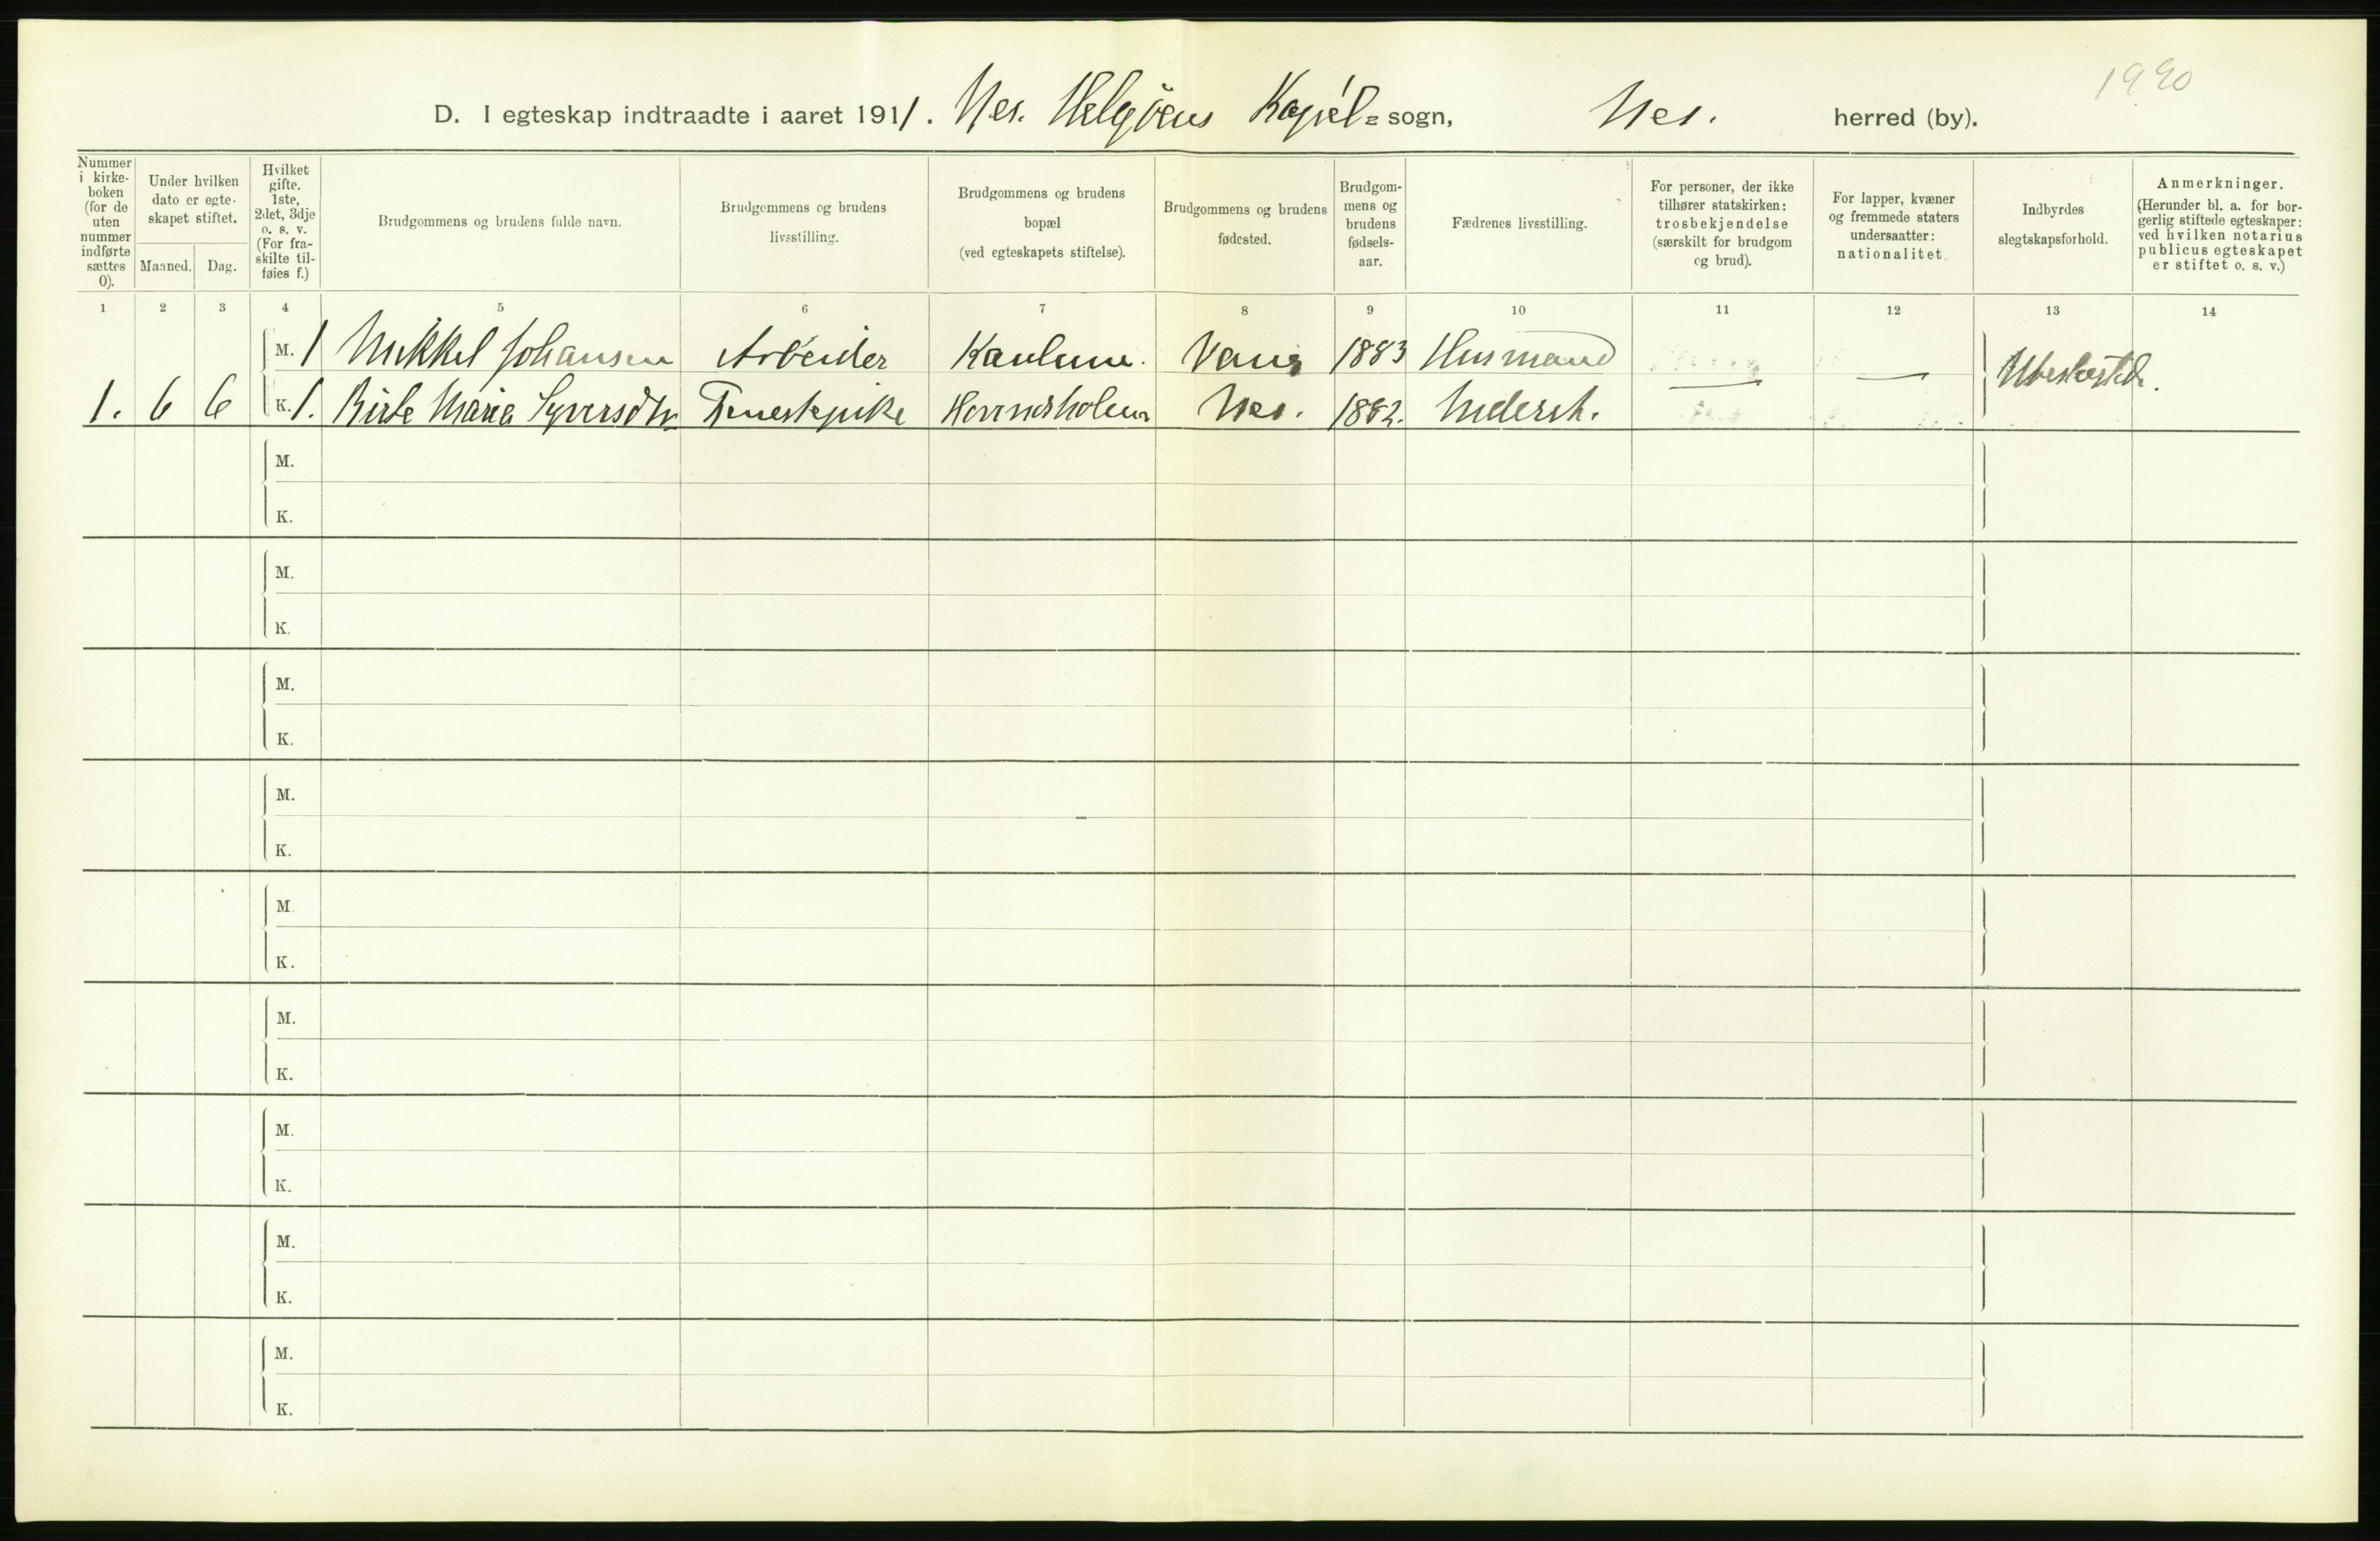 1990
D. I egteskap indtraadte i aaret 1911. Nes. Helgøens Kapel = sogn, Nes. herred (by).
Nummer i kirkeboken (for de uten nummer indførte sættes 0).
Under hvilken dato er egteskapet stiftet.
Maaned. Dag.
Hvilket gifte. 1ste, 2det, 3dje o. s. v. (For fraskilte tilføies f.)
Brudgommens og brudens fulde navn.
Brudgommens og brudens livsstilling.
Brudgommens og brudens bopæl (ved egteskapets stiftelse).
Brudgommens og brudens fødested.
Brudgommens og brudens fødselsaar.
Fædrenes livsstilling.
For personer, der ikke tilhører statskirken: trosbekjendelse (særskilt for brudgom og brud).
For lapper, kvæner og fremmede staters undersaatter: nationalitet.
Indbyrdes slegtskapsforhold.
Anmerkninger. (Herunder bl. a. for borgerlig stiftede egteskaper: ved hvilken notarius publicus egteskapet er stiftet o. s. v.)
1 2 3 4 5 6 7 8 9 10 11 12 13 14
M. 1 Mikkel Johansen Arbeider Vang 1883 Husmand
1. 6 6 K. 1. Birte Maria Syversdtr Tjenestepike Nes. 1882. — — Ubeslegtede.
M.
K.
M.
K.
M.
K.
M.
K.
M.
K.
M.
K.
M.
K.
M.
K.
M.
K.